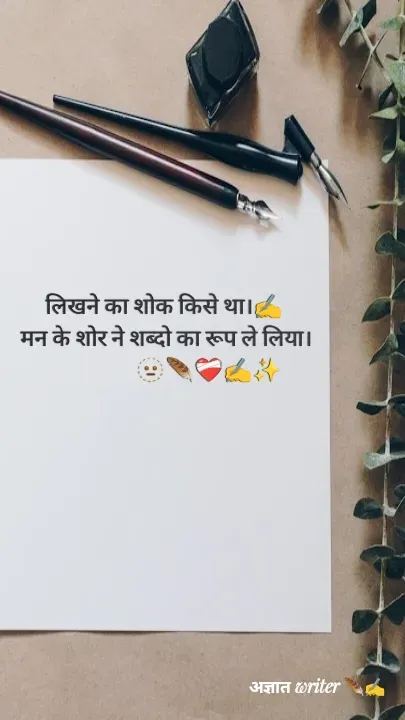 लिखने का शोक किसे था।✍️
मन के शोर ने शब्दो का रूप ले लिया।
🫥🪶❤️‍🩹✍️✨
अज्ञात writer 🪶✍️